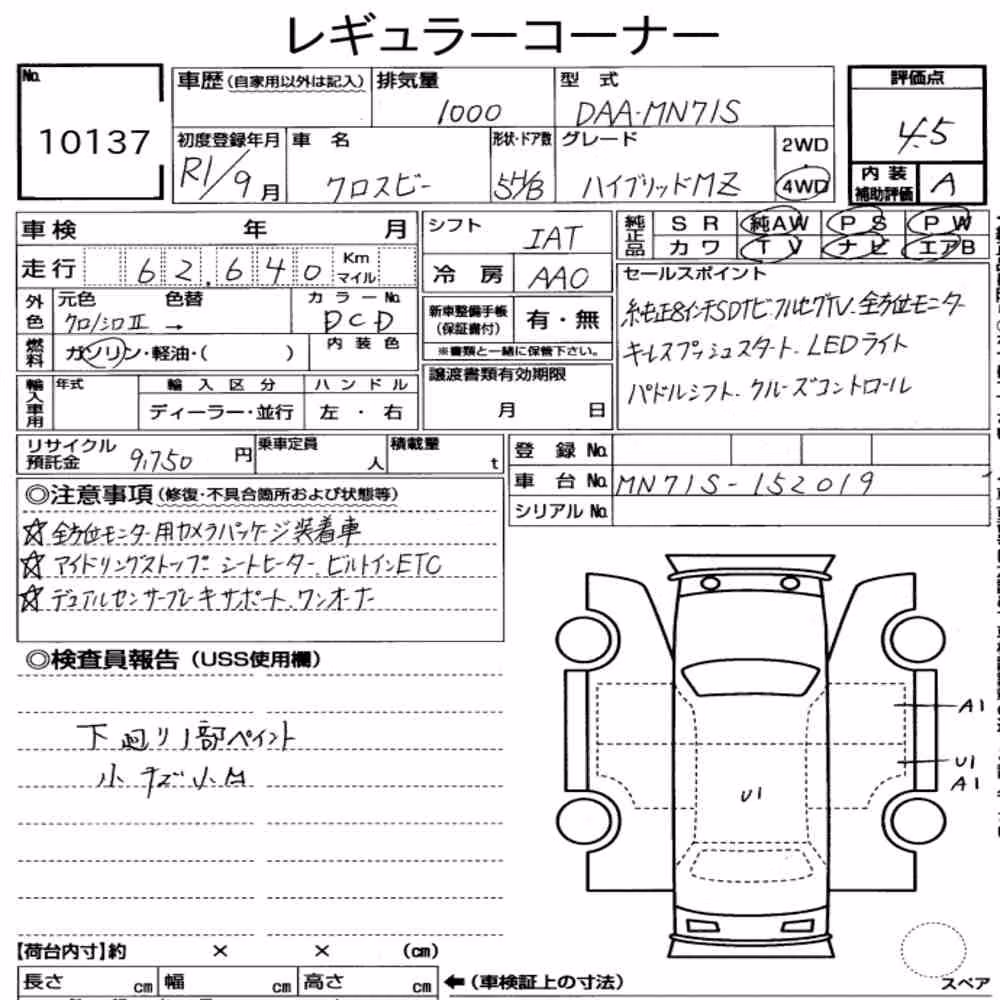 レギュラーコーナー
No. 10137
車歴(自家用以外は記入) 排気量 1000 型式 DAA-MN71S
評価点 4.5
初度登録年月 R1/9月 車名 クロスビー 形状・ドア数 5H/B グレード ハイブリッドMZ 2WD 4WD
内装補助評価 A
車検 年 月
走行 62,640 Km マイル
シフト IAT
冷房 AAC
純正品 SR 純AW PS PW
カワ TV ナビ エアB
外色 元色 クロ/シロⅡ 色替 → カラーNo. DCD
内装色
燃料 ガソリン・軽油・( )
新車整備手帳(保証書付) 有・無
※書類と一緒に保管下さい。
セールスポイント
純正8インチSDナビ フルセグTV、全方位モニター
キーレスプッシュスタート、LEDライト
パドルシフト、クルーズコントロール
輸入車用 年式 輸入区分 ディーラー・並行 ハンドル 左・右
譲渡書類有効期限 月 日
リサイクル預託金 9,750円 乗車定員 人 積載量 t
登録No.
車台No. MN71S-152019
シリアルNo.
◎注意事項(修復・不具合箇所および状態等)
☆全方位モニター用カメラパッケージ装着車
☆アイドリングストップ シートヒーター、ビルトインETC
☆デュアルセンサーブレーキサポート、ワンオーナー
◎検査員報告(USS使用欄)
下廻り1部ペイント
小キズ小凹
A1
U1
A1
U1
【荷台内寸】約 × × (cm)
長さ cm 幅 cm 高さ cm ←(車検証上の寸法)
スペア